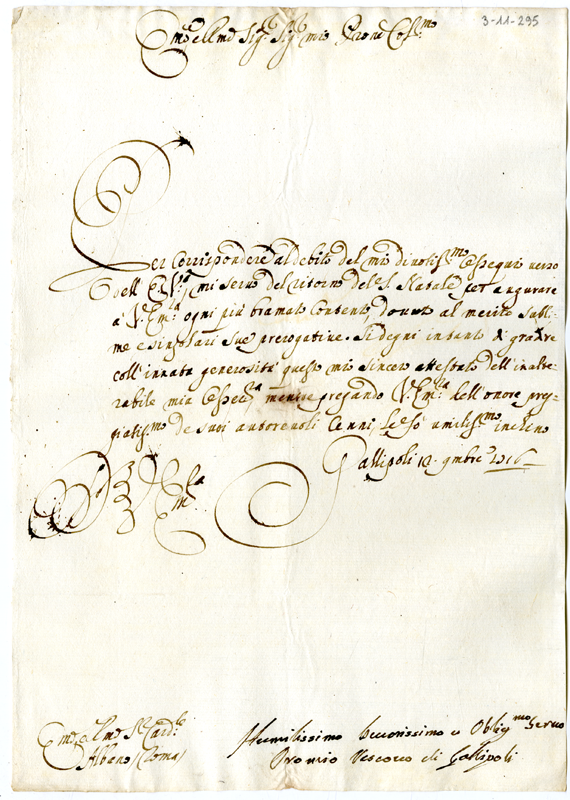 3-11-295
Em.º e Rmo Sig.r Sig.r mio Pron̄e Col.mo
Per corrispondere al debito del mio divotiss.mo ossequio verso
dell' E. V.ra, mi servo del ritorno del S. Natale per augurare
a V. Em.za ogni più bramato contento dovuto al merito subli-
me e singolari sue prerogative. Si degni intanto di gradire
coll' innata generosità questo mio sincero attestato dell' inalte-
rabile mia osseq.za mentre pregando V. Em.za dell' onore pre-
giatis.mo de suoi autorevoli cenni, le fò umilis.mo inchino
Gallipoli 12. 9mbre 1716
Em.za
Em.o e Rmo Sr. Card.le
Albano (Roma)
Humilissimo Devotissimo e Oblig.mo Servo
Oronzio Vescovo di Gallipoli